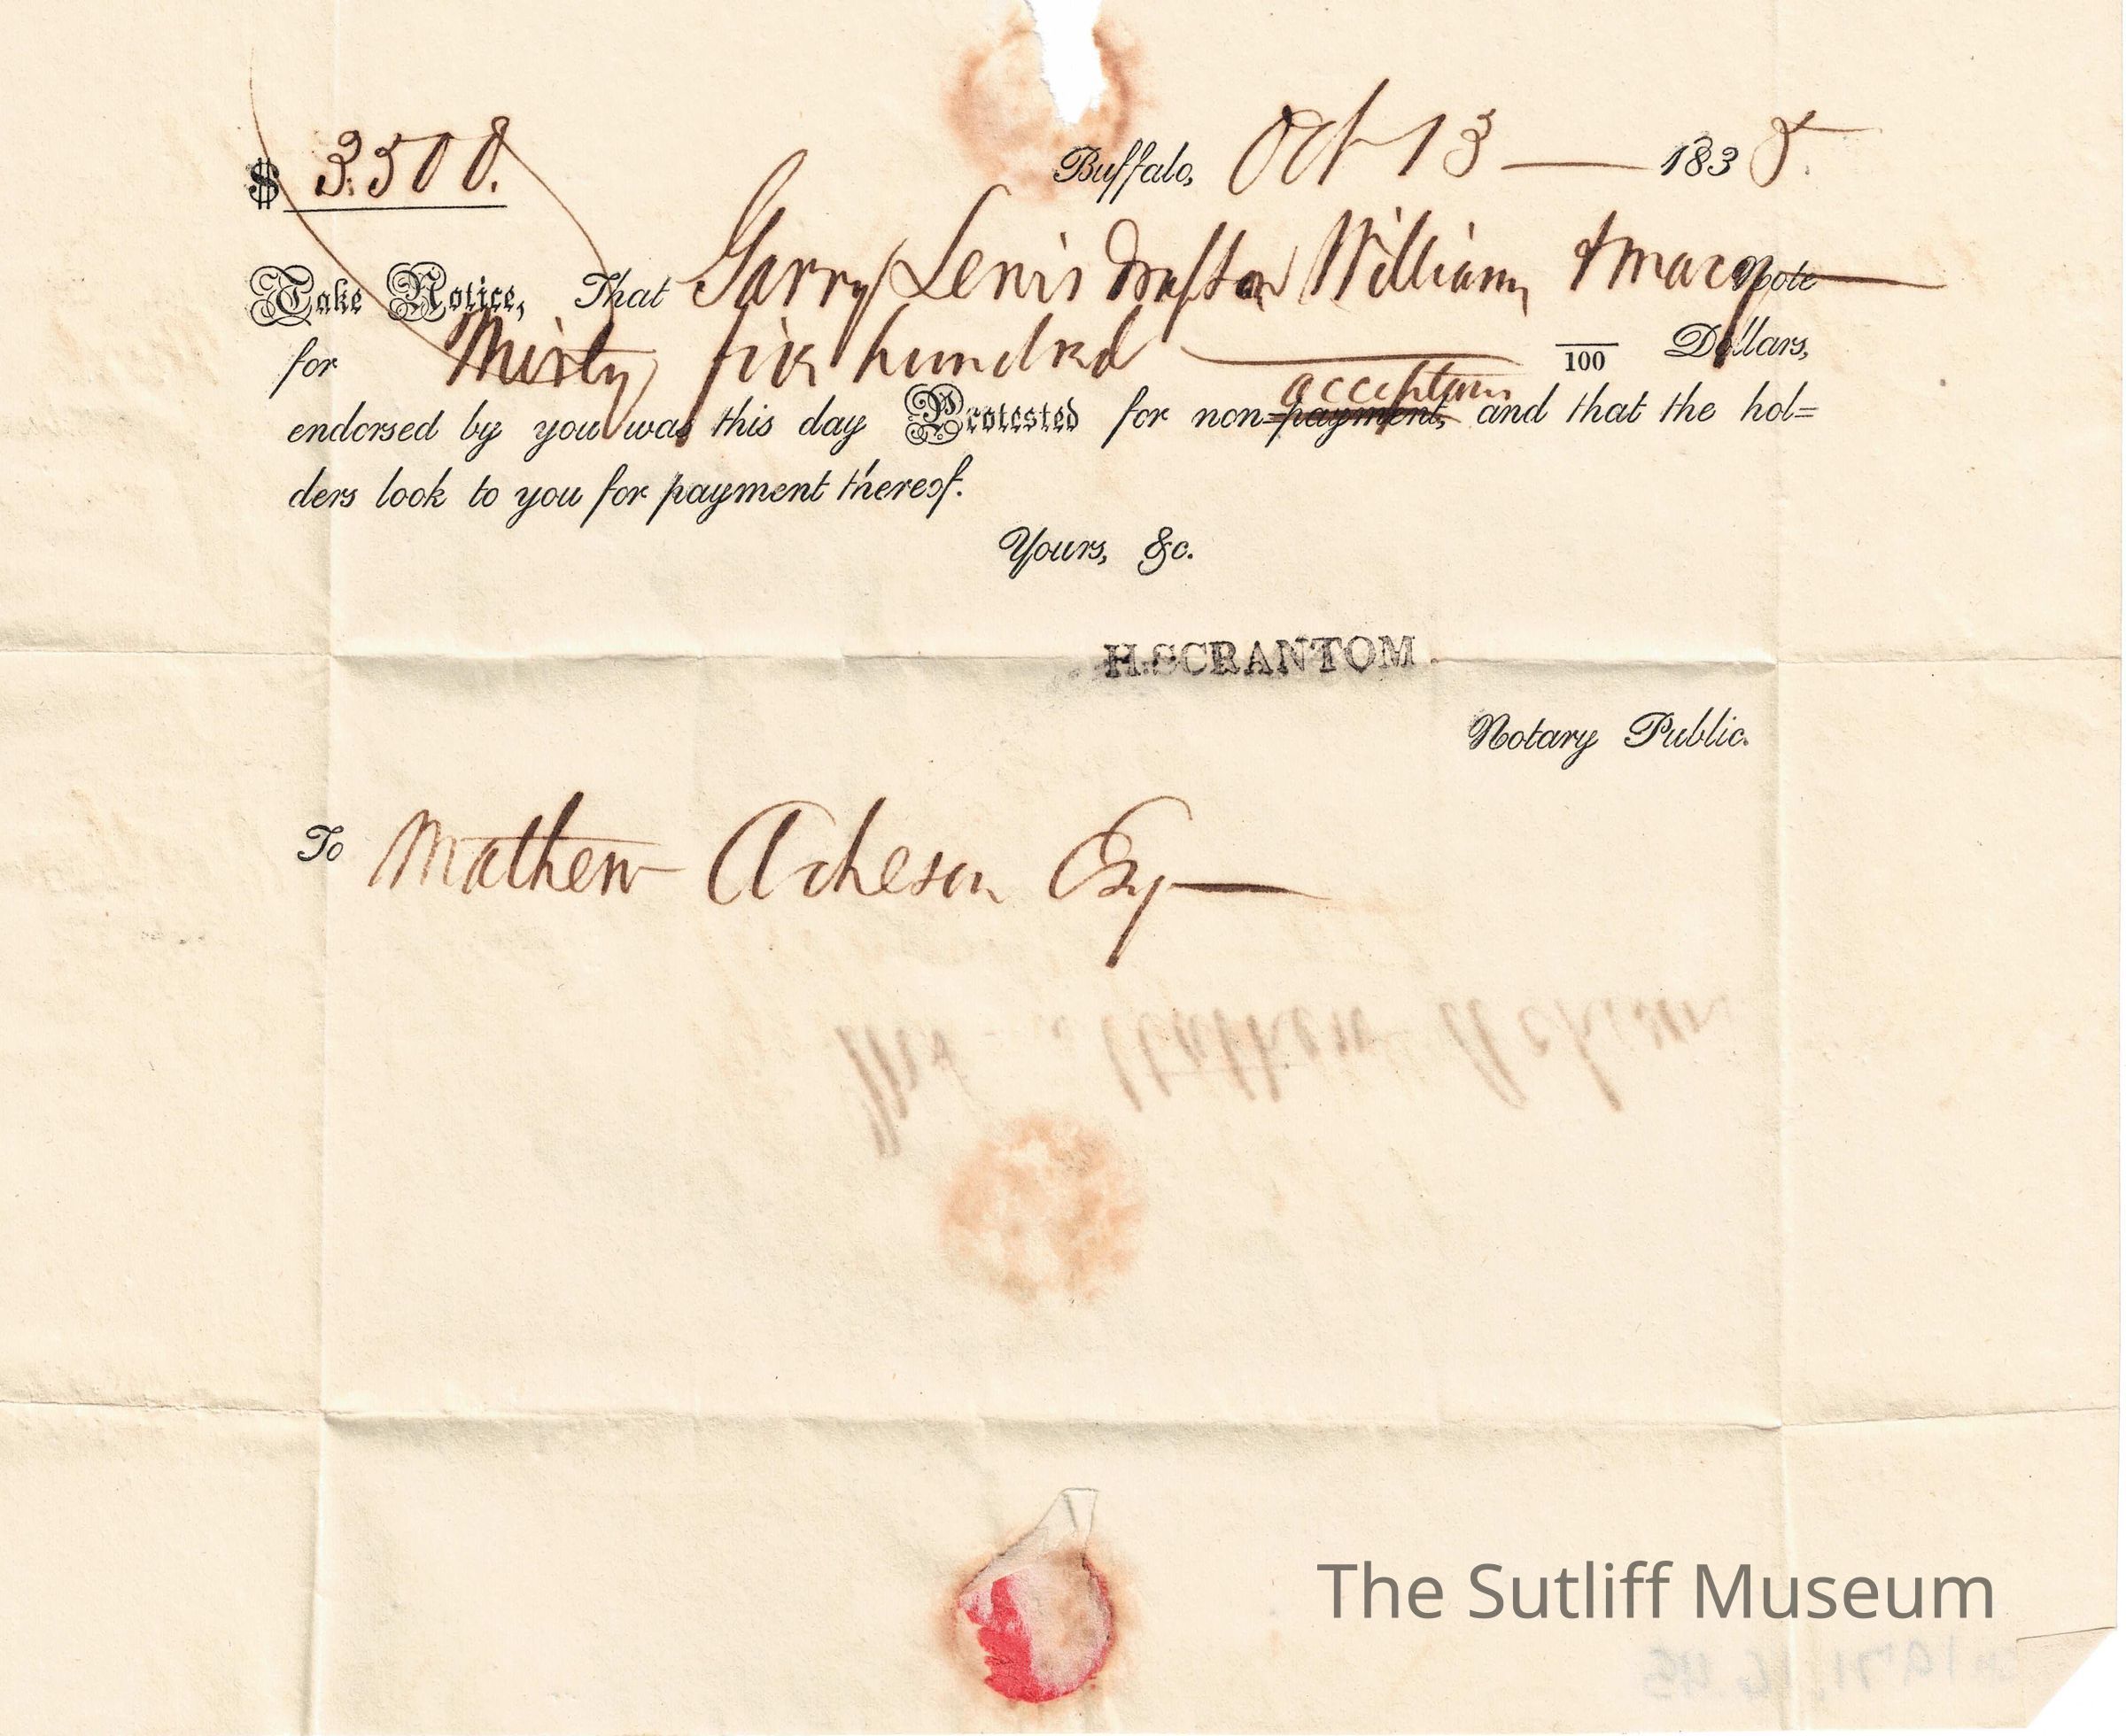 $ 3.500. Buffalo, Oct 13 — 1835.
Take Notice, That Garry Lewis Draft on William note
for Thirty five hundred /100 Dollars,
acceptance
endorsed by you was this day Protested for non-payment, and that the hol=
ders look to you for payment thereof.
Yours, &c.
H. SCRANTOM.
Notary Public.
To Mathew Acheson Esq
The Sutliff Museum